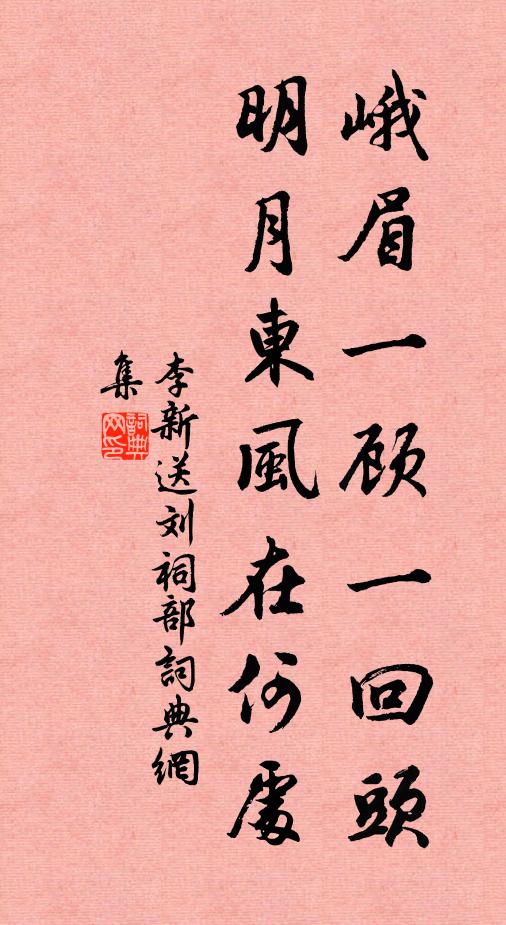 峨眉一顾一回頭
明月東風在何處
李新送刘祠部詞典網
集
詞典網印